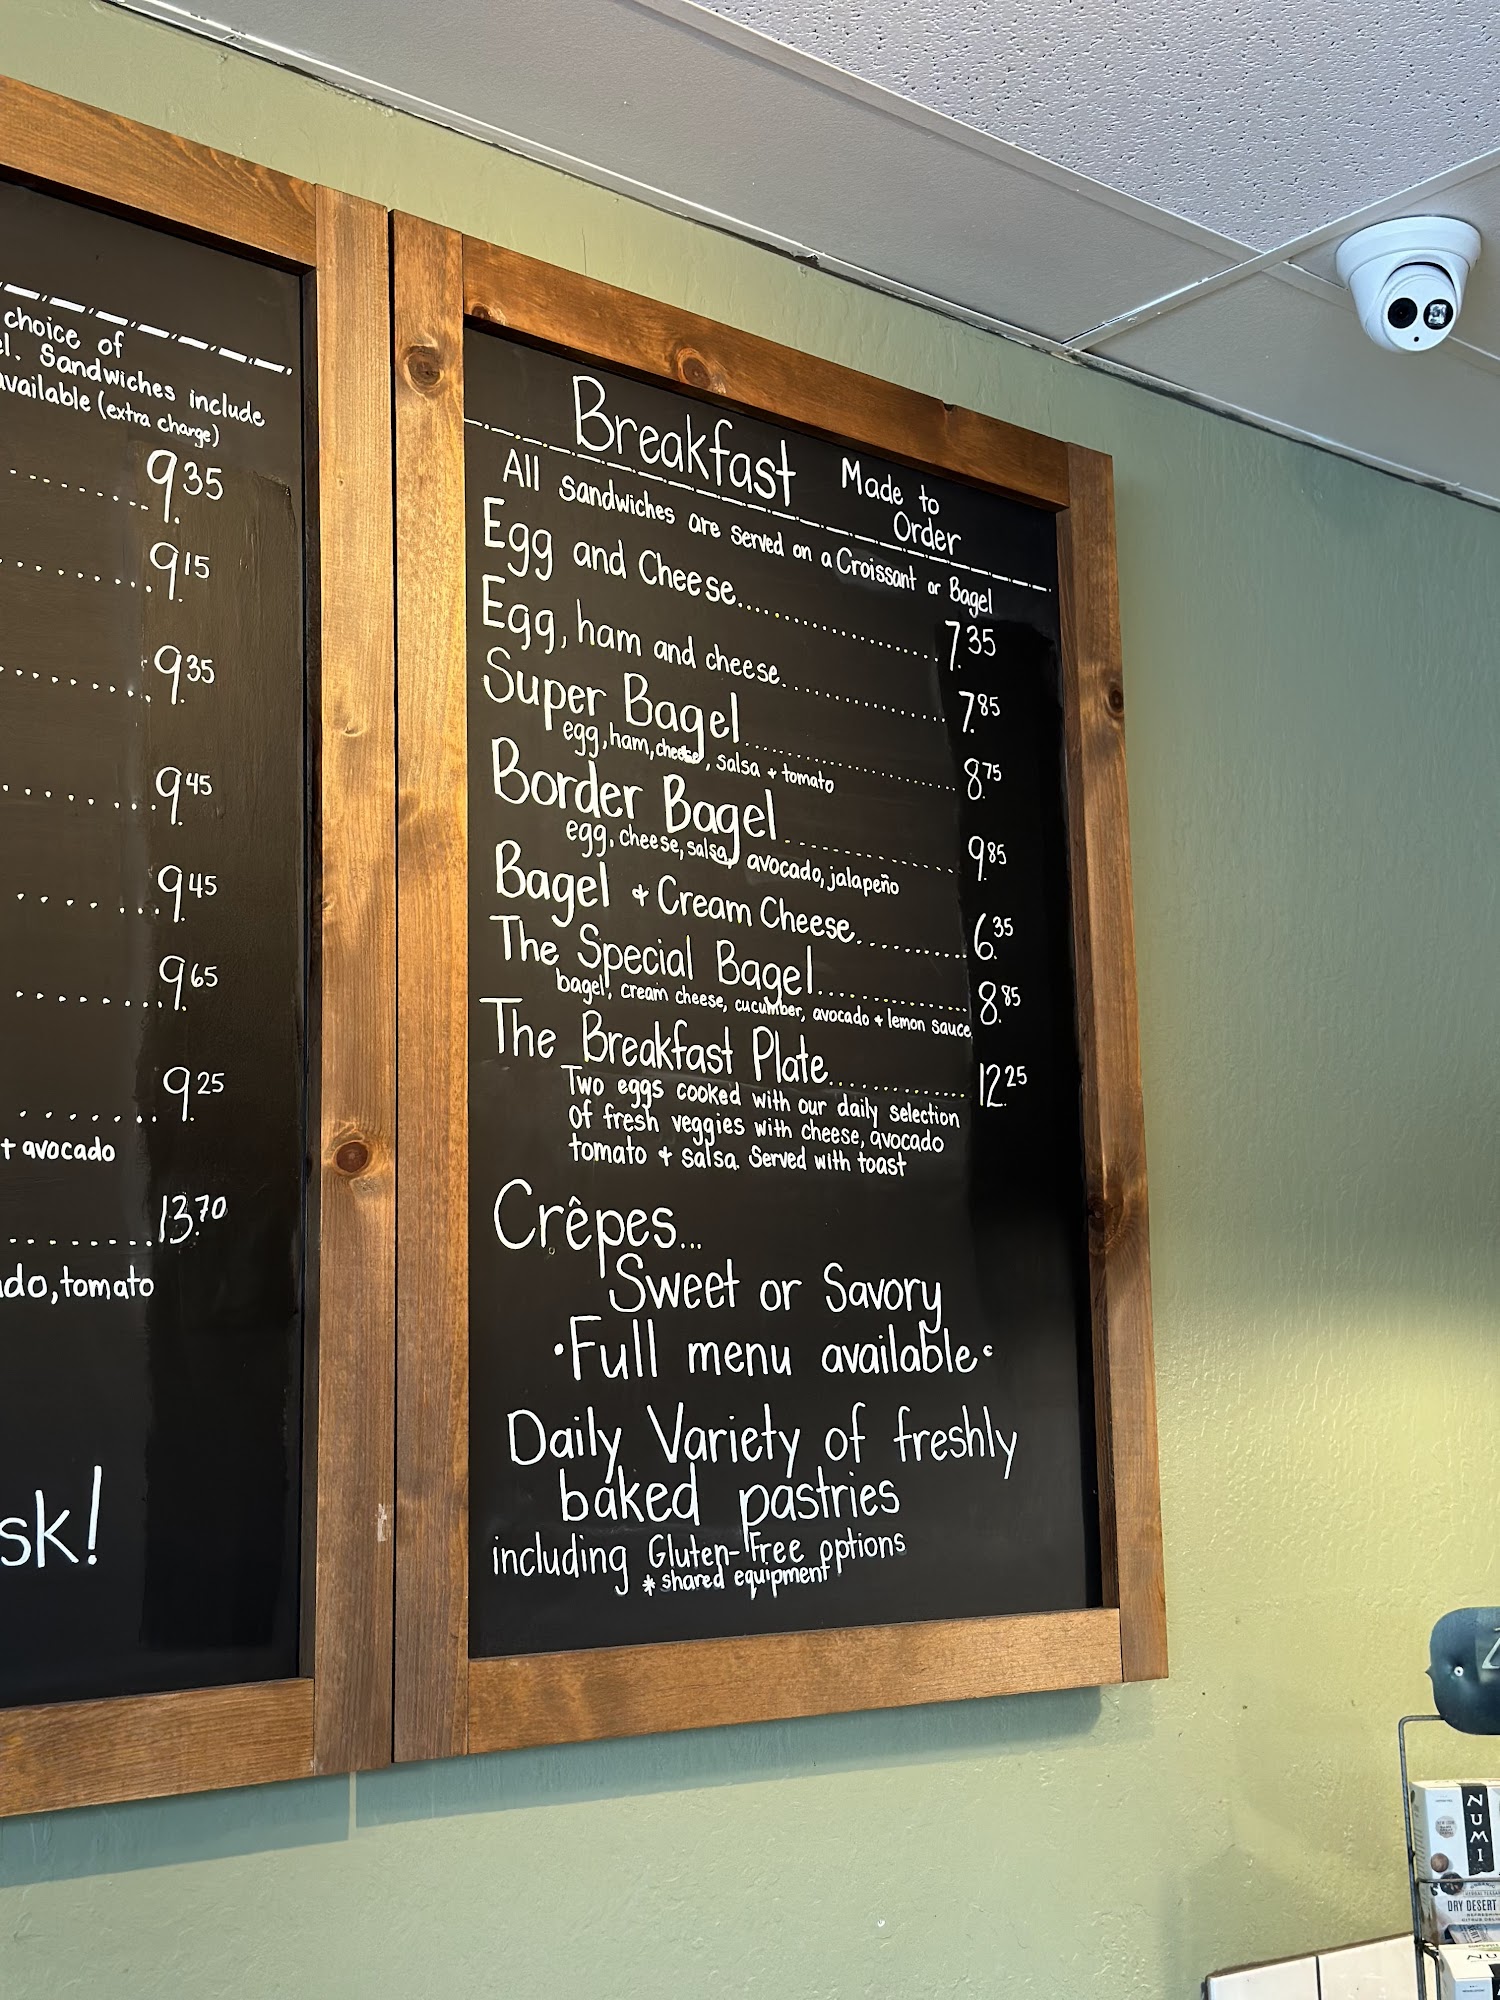 choice of
Sandwiches include
available (extra charge)
9.35
9.15
9.35
9.45
9.45
9.65
9.25
+ avocado
13.70
tomato
Breakfast Made to
Order
All sandwiches are served on a Croissant or Bagel
Egg and Cheese.................... 7.35
Egg, ham and cheese.................. 7.85
Super Bagel...................... 8.75
egg, ham, cheese, salsa + tomato
Border Bagel................ 9.85
egg, cheese, salsa, avocado, jalapeño
Bagel + Cream Cheese........... 6.35
The Special Bagel............... 8.85
bagel, cream cheese, cucumber, avocado + lemon sauce
The Breakfast Plate............ 12.25
Two eggs cooked with our daily selection
of fresh veggies with cheese, avocado
tomato + salsa. Served with toast
Crêpes...
Sweet or Savory
·Full menu available·
Daily Variety of freshly
baked pastries
including Gluten-Free options
* shared equipment
NUMI
DRY DESERT